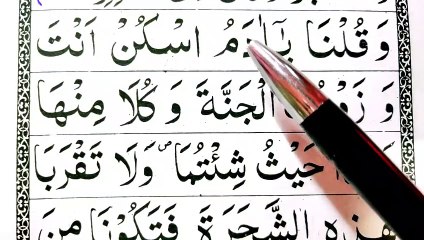 وَ قُلْنَا يٰۤاٰدَمُ اسْكُنْ اَنْتَ
الْجَنَّةَ وَ كُلَا مِنْهَا
حَيْثُ شِئْتُمَا ۪ وَلَا تَقْرَبَا
هٰذِهِ الشَّجَرَةَ فَتَكُوْنَا مِنَ